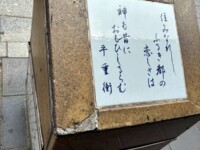 住みなれし
ふるき都の
恋しさは
神も昔に
おもひしるらむ
平重衡